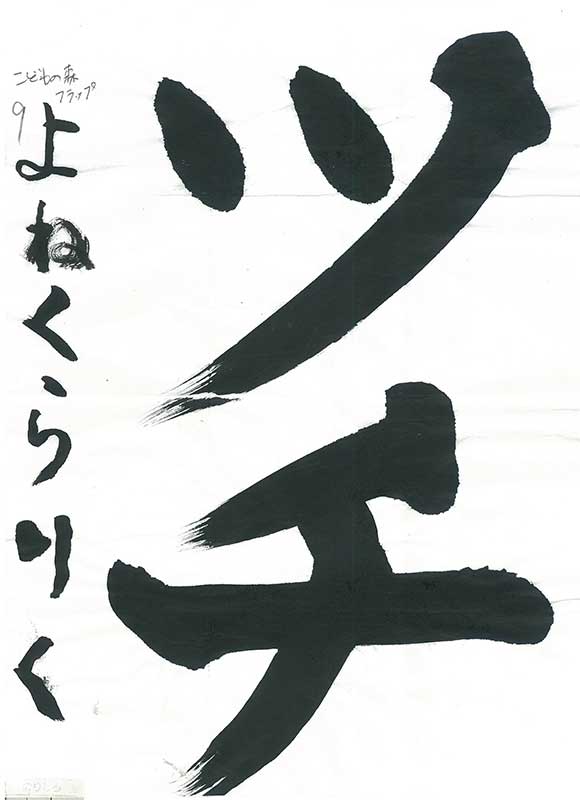 ツチ
こどもの森
フラップ
9
よねくらりく